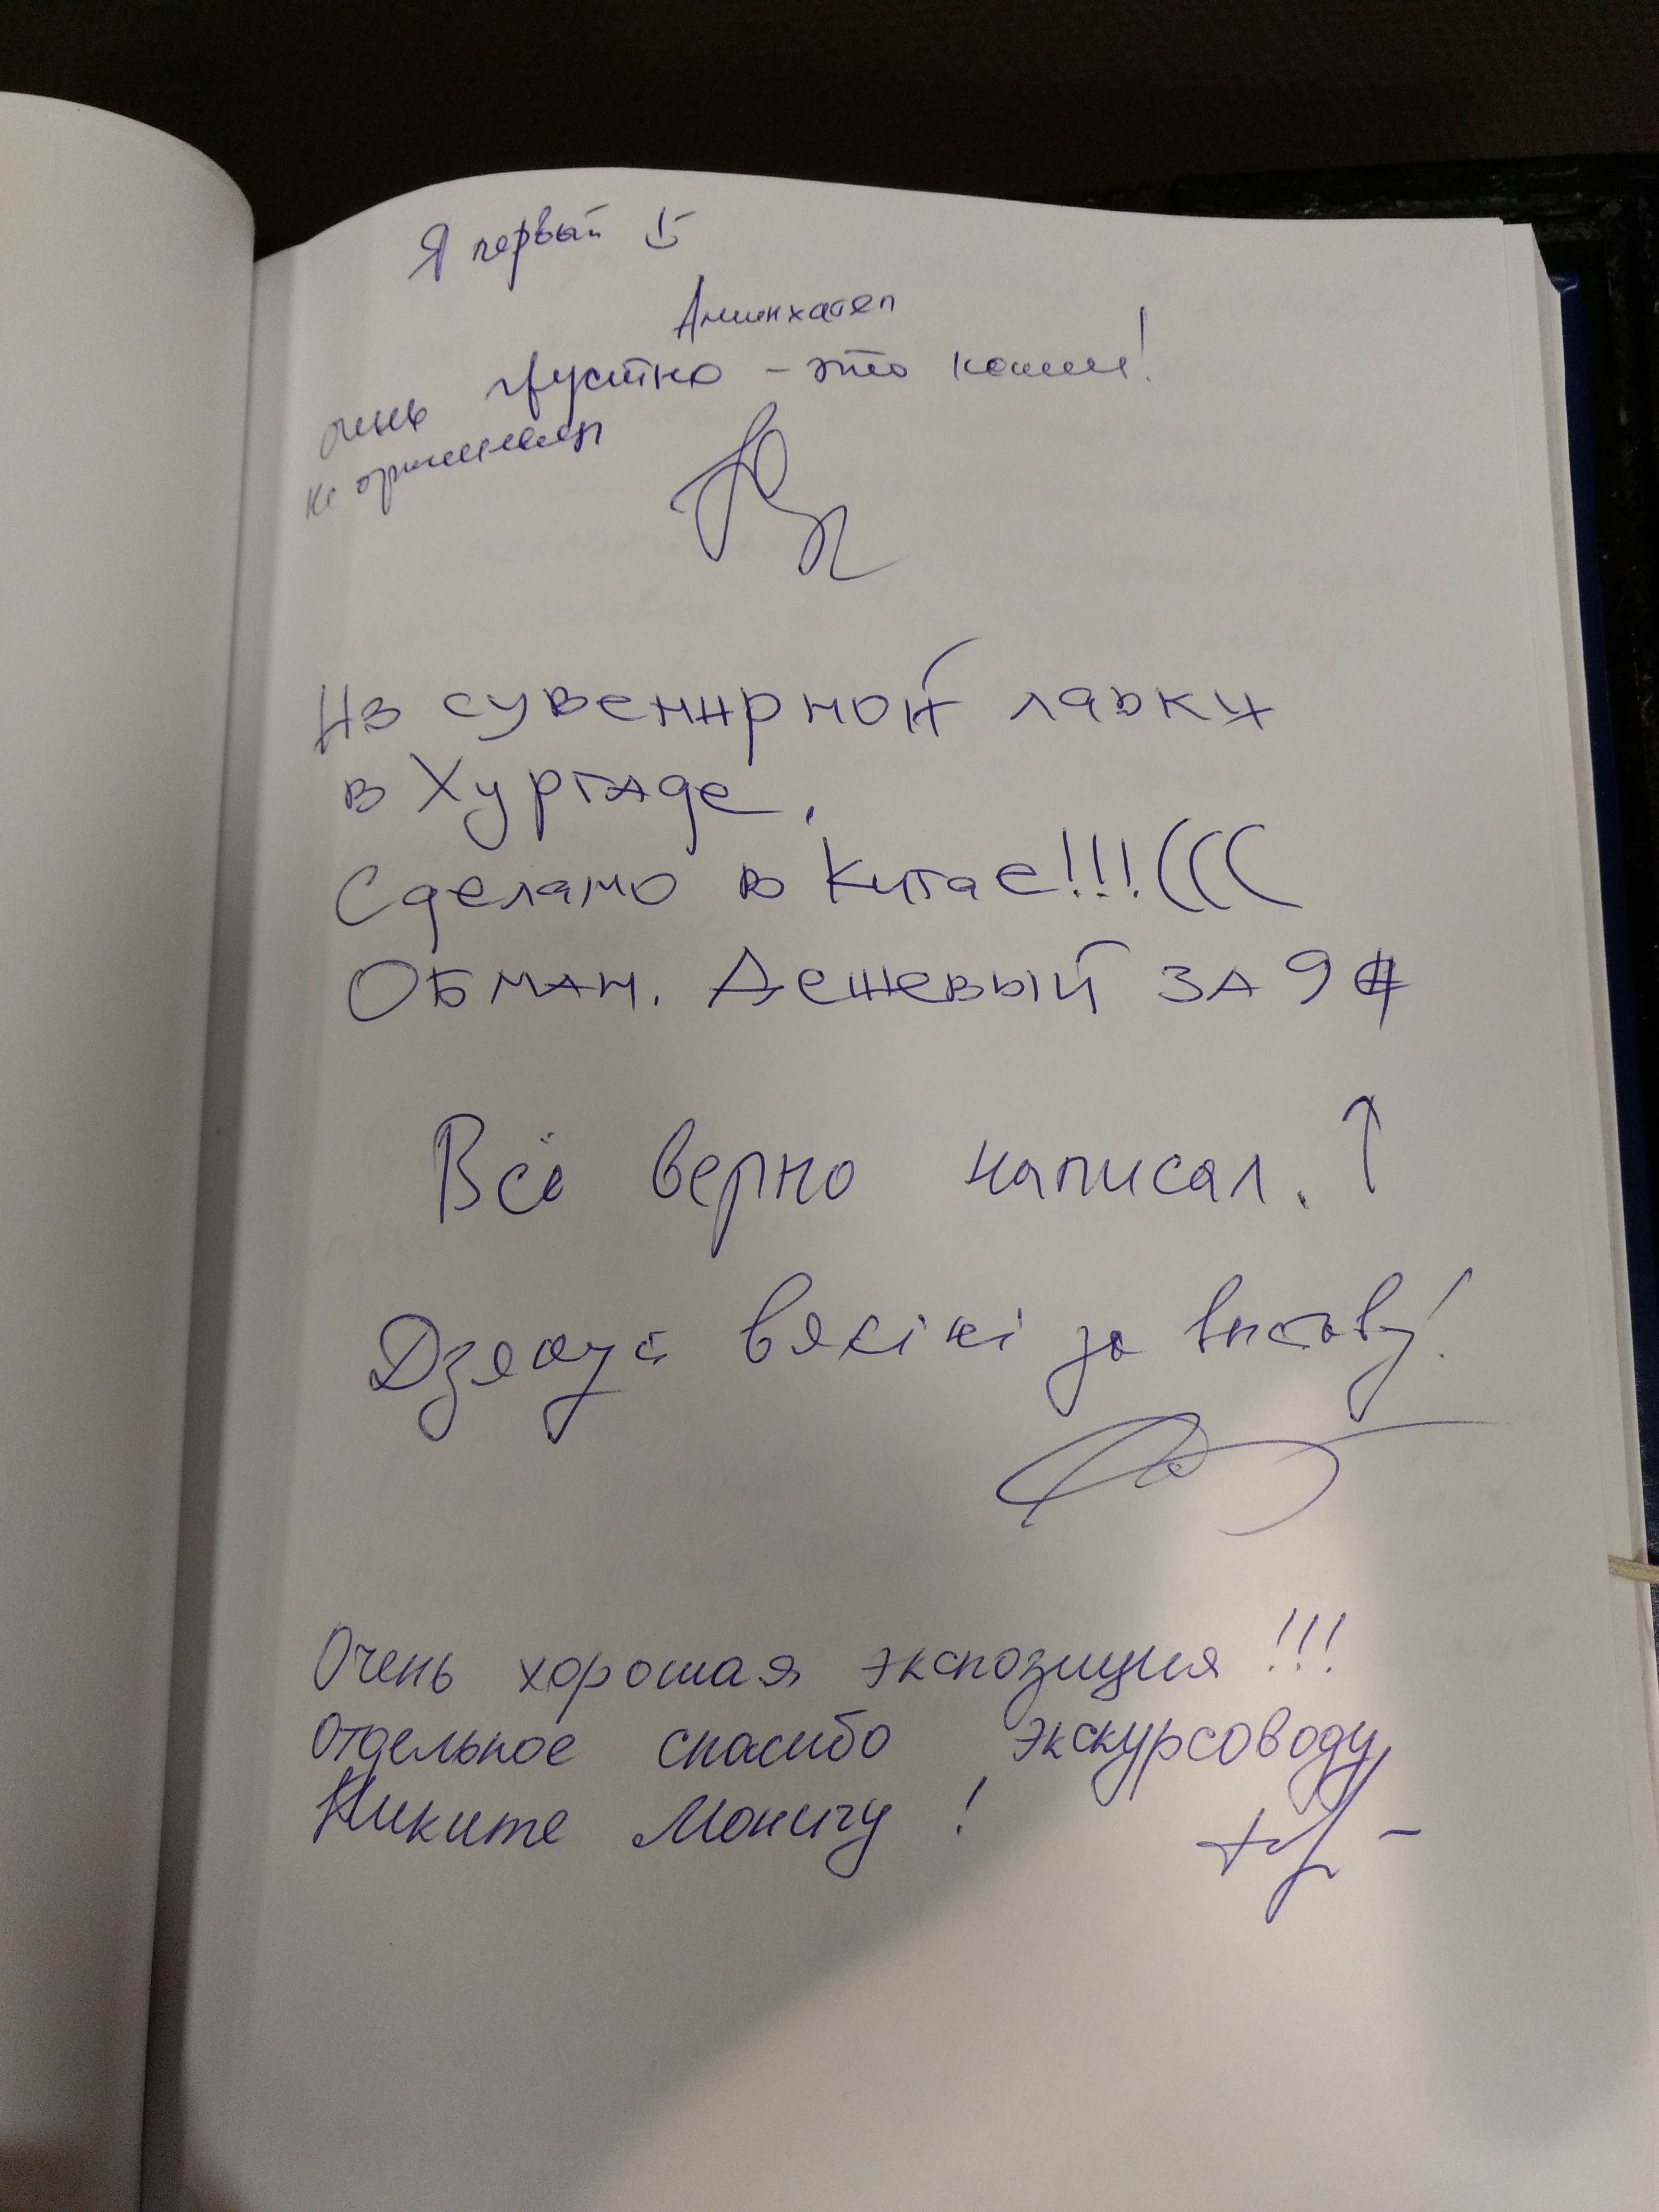 Я первый
Аминхатеп
очень грустно - это копия!
не оригинал
Из сувенирной лавки
в Хургаде.
Сделано в Китае!!!(((
Обман. Дешевый за 9
Всё верно написал. ↑
Дзякуй вялікі за выставу!
Очень хорошая экспозиция!!!
Отдельное спасибо экскурсоводу
Никите Моничу!